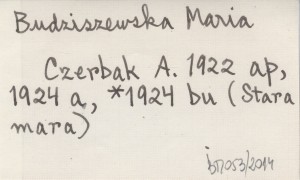 Budziszewska Maria
Czerbak A. 1922 ap,
1924 a, *1924 bu (Stara
mara)
/2014